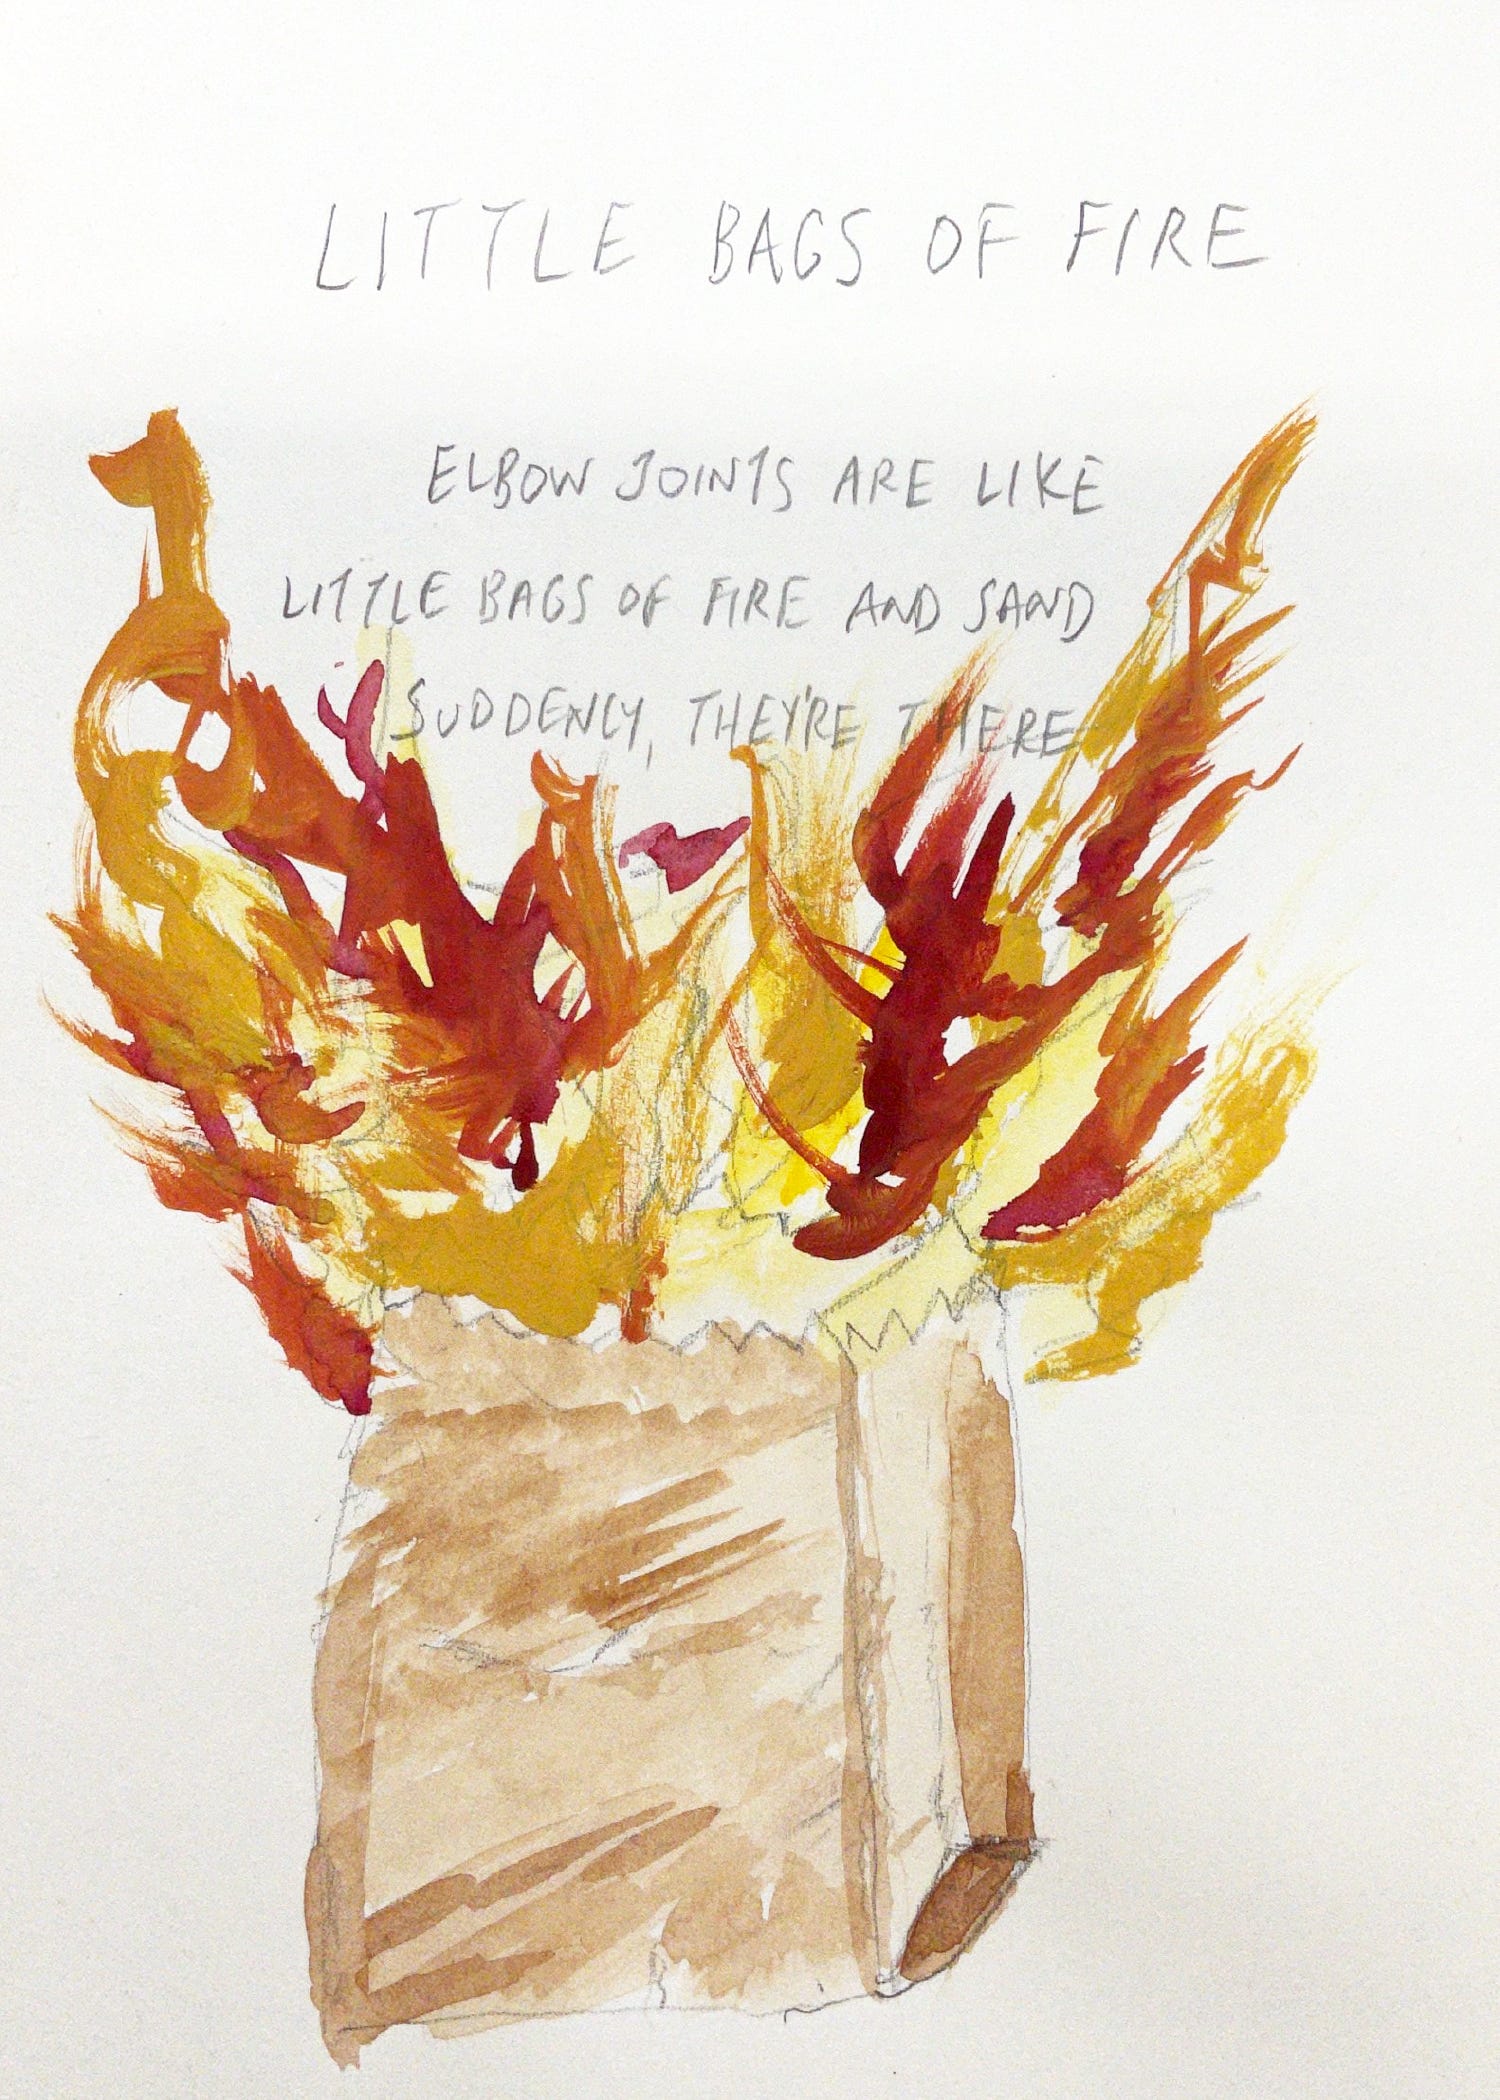 LITTLE BAGS OF FIRE
ELBOW JOINTS ARE LIKE
LITTLE BAGS OF FIRE AND SAND
SUDDENLY, THEY'RE THERE